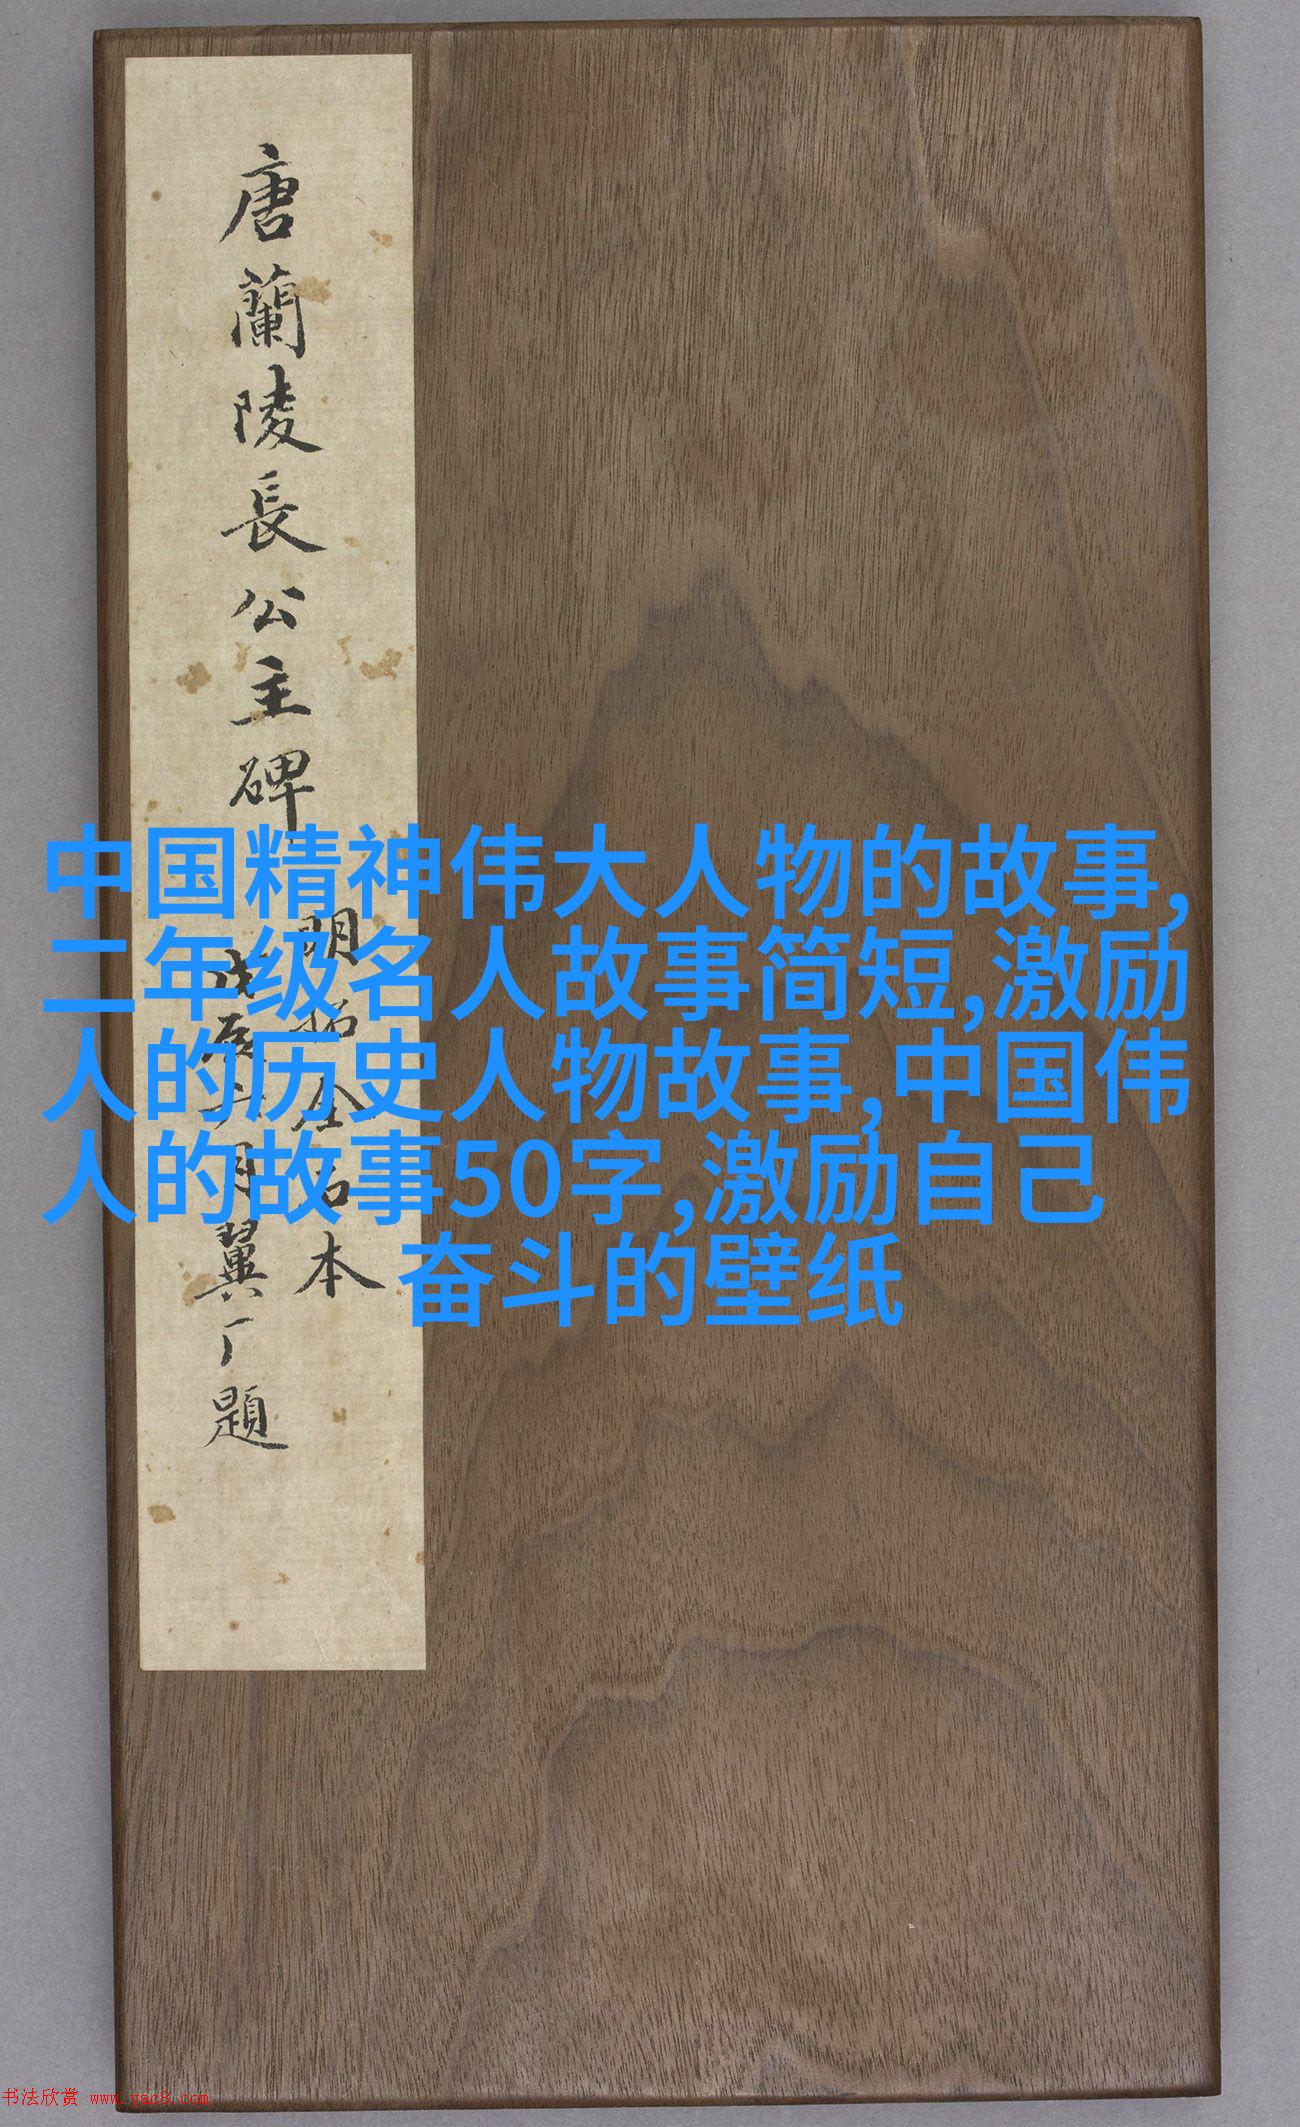 唐蘭陵長公主碑
明拓全石本
戊辰二月翼厂題
中国精神伟大人物的故事,
二年级名人故事简短,激励
人的历史人物故事,中国伟
人的故事50字,激励自己
奋斗的壁纸
书法欣赏 www.yac8.com